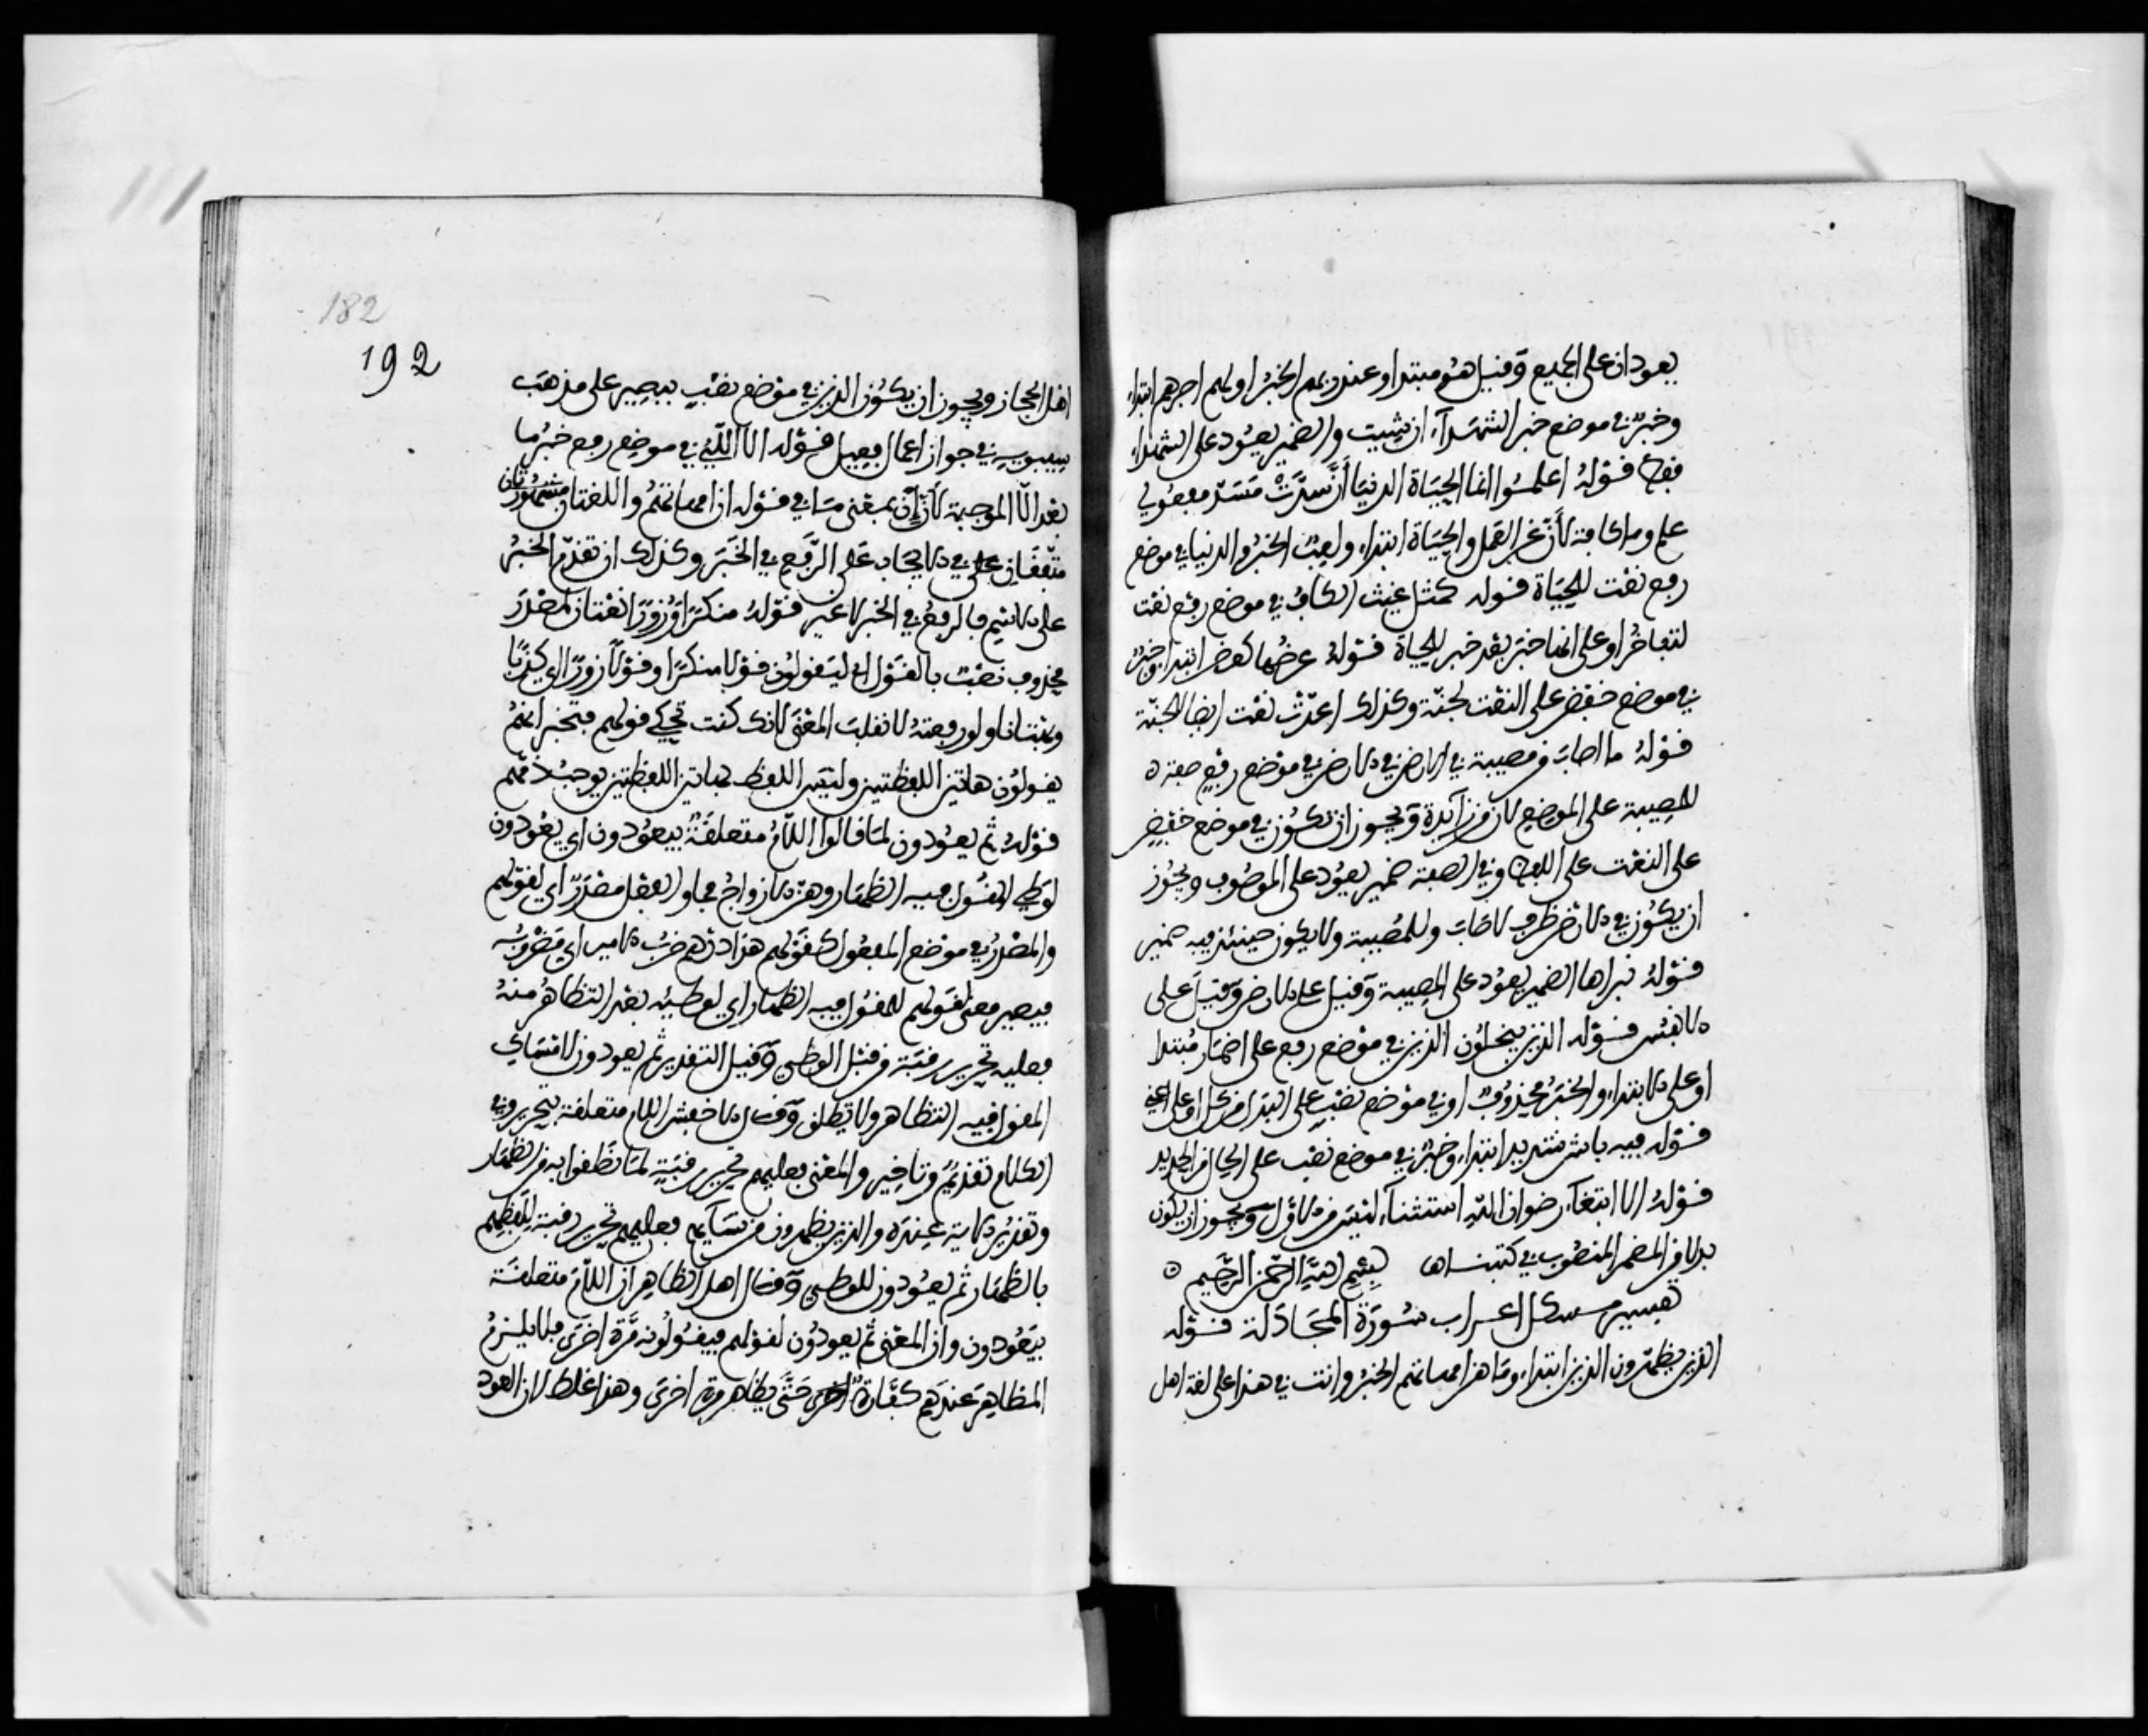 يعودان على الجميع وقيل هو مبتدا وعند ربهم الخبر اولهم اجرهم ابتداء
وخبر في موضع خبر الشهداء ان شيت والضمير يعود على الشهداء
فقط قوله اعلموا انما الحياة الدنيا أنّ سدّت مسدّ مفعولي
علم وما كافة لأنّ عن العمل والحياة ابتداء ولعب الخبر والدنيا في موضع
رفع نعت للحياة قوله كمثل غيث الكاف في موضع رفع نعت
لتفاخر او على انها خبر بعد خبر للحياة قوله عرضها كعرض ابتدا وخبر
في موضع خفض على النعت لجنة وكذلك اعدّت نعت ايضا للجنة
قوله ما اصاب من مصيبة في الارض في الارض في موضع رفع صفة
لمصيبة على الموضع لان من زايدة ويجوز ان تكون في موضع خفض
على النعت على اللفظ وفي الصفة ضمير يعود على الموصوف ويجوز
ان يكون في الارض ظرف لاصاب وللمصيبة ولا يكون حينئذ فيه ضمير
قوله نبراها الضمير يعود على المصيبة وقيل على الارض وقيل على
الانفس قوله الذين يبخلون الذين في موضع رفع على اضمار مبتدا
او على الابتداء والخبر محذوف او في موضع نصب على البدل من كل او على اعني
قوله فيه باس شديد ابتداء وخبر في موضع نصب على الحال من الحديد
قوله الا ابتغاء رضوان الله استثناء ليس من الاول ويجوز ان يكون
بدلا من المضمر المنصوب في كتبناها بسم الله الرحمن الرحيم
تفسير مشكل اعراب سورة المجادلة قوله
الذين يظهرون الذين ابتداء وما هن امهاتهم الخبر واتت في هذا على لغة اهل
182
192
اهل الحجاز ويجوز ان يكون الذين في موضع نصب ببصير على مذهب
سيبويه في جواز اعمال فعيل قوله الا اللّئي في موضع رفع خبر ما
بعد الّا الموجبة لأنّ إن بمعنى ما في قوله ان امهاتهم واللغتان مشهورتان
متّفقان على في الايجاب على الرّفع في الخبر وكذلك ان تقدم الخبر
على الاسم فالرفع في الخبر لا غير قوله منكرا وزورا نعتان لمصدر
محذوف نصب بالقول اي ليقولون قولا منكرا وقولا زورا اي كذبا
وبهتانا ولو رفعته لانقلب المعنى لانك كنت تحكي قولهم فتخبر انهم
يقولون هاتين اللفظتين وليس اللفظ بهاتين اللفظتين يوجب ذمّهم
قوله ثم يعودون لما قالوا اللام متعلقة بيعودون اي يعودون
لوطي المقول فيه الظهار وهن الازواج فما والفعل مصدر اي لقولهم
والمصدر في موضع المفعول كقولهم هذا درهم ضرب الامير اي مضروبه
فيصير معنى لقولهم للمقول فيه الظهار اي لوطئه بعد التظاهر منه
فعليه تحرير رقبة من قبل الوطي وقيل التقدير ثم يعودون لامساك
المقول فيه التظاهر ولا يطلق وقال الاخفش اللام متعلقة بتحرير وفي
الكلام تقديم وتاخير والمعنى فعليهم تحرير رقبة لما نطقوا به من الظهار
وتقدير الاية عنده والذين يظهرون من نسايهم فعليهم تحرير رقبة للفظهم
بالظهار ثم يعودون للوطي وقال اهل الظاهر ان اللام متعلقة
بيعودون وان المعنى ثم يعودون لقولهم فيقولونه مرّة اخرى فلا يلزم
المظاهر عندهم كفّارة حتى يظاهر مرة اخرى وهذا غلط لان العود